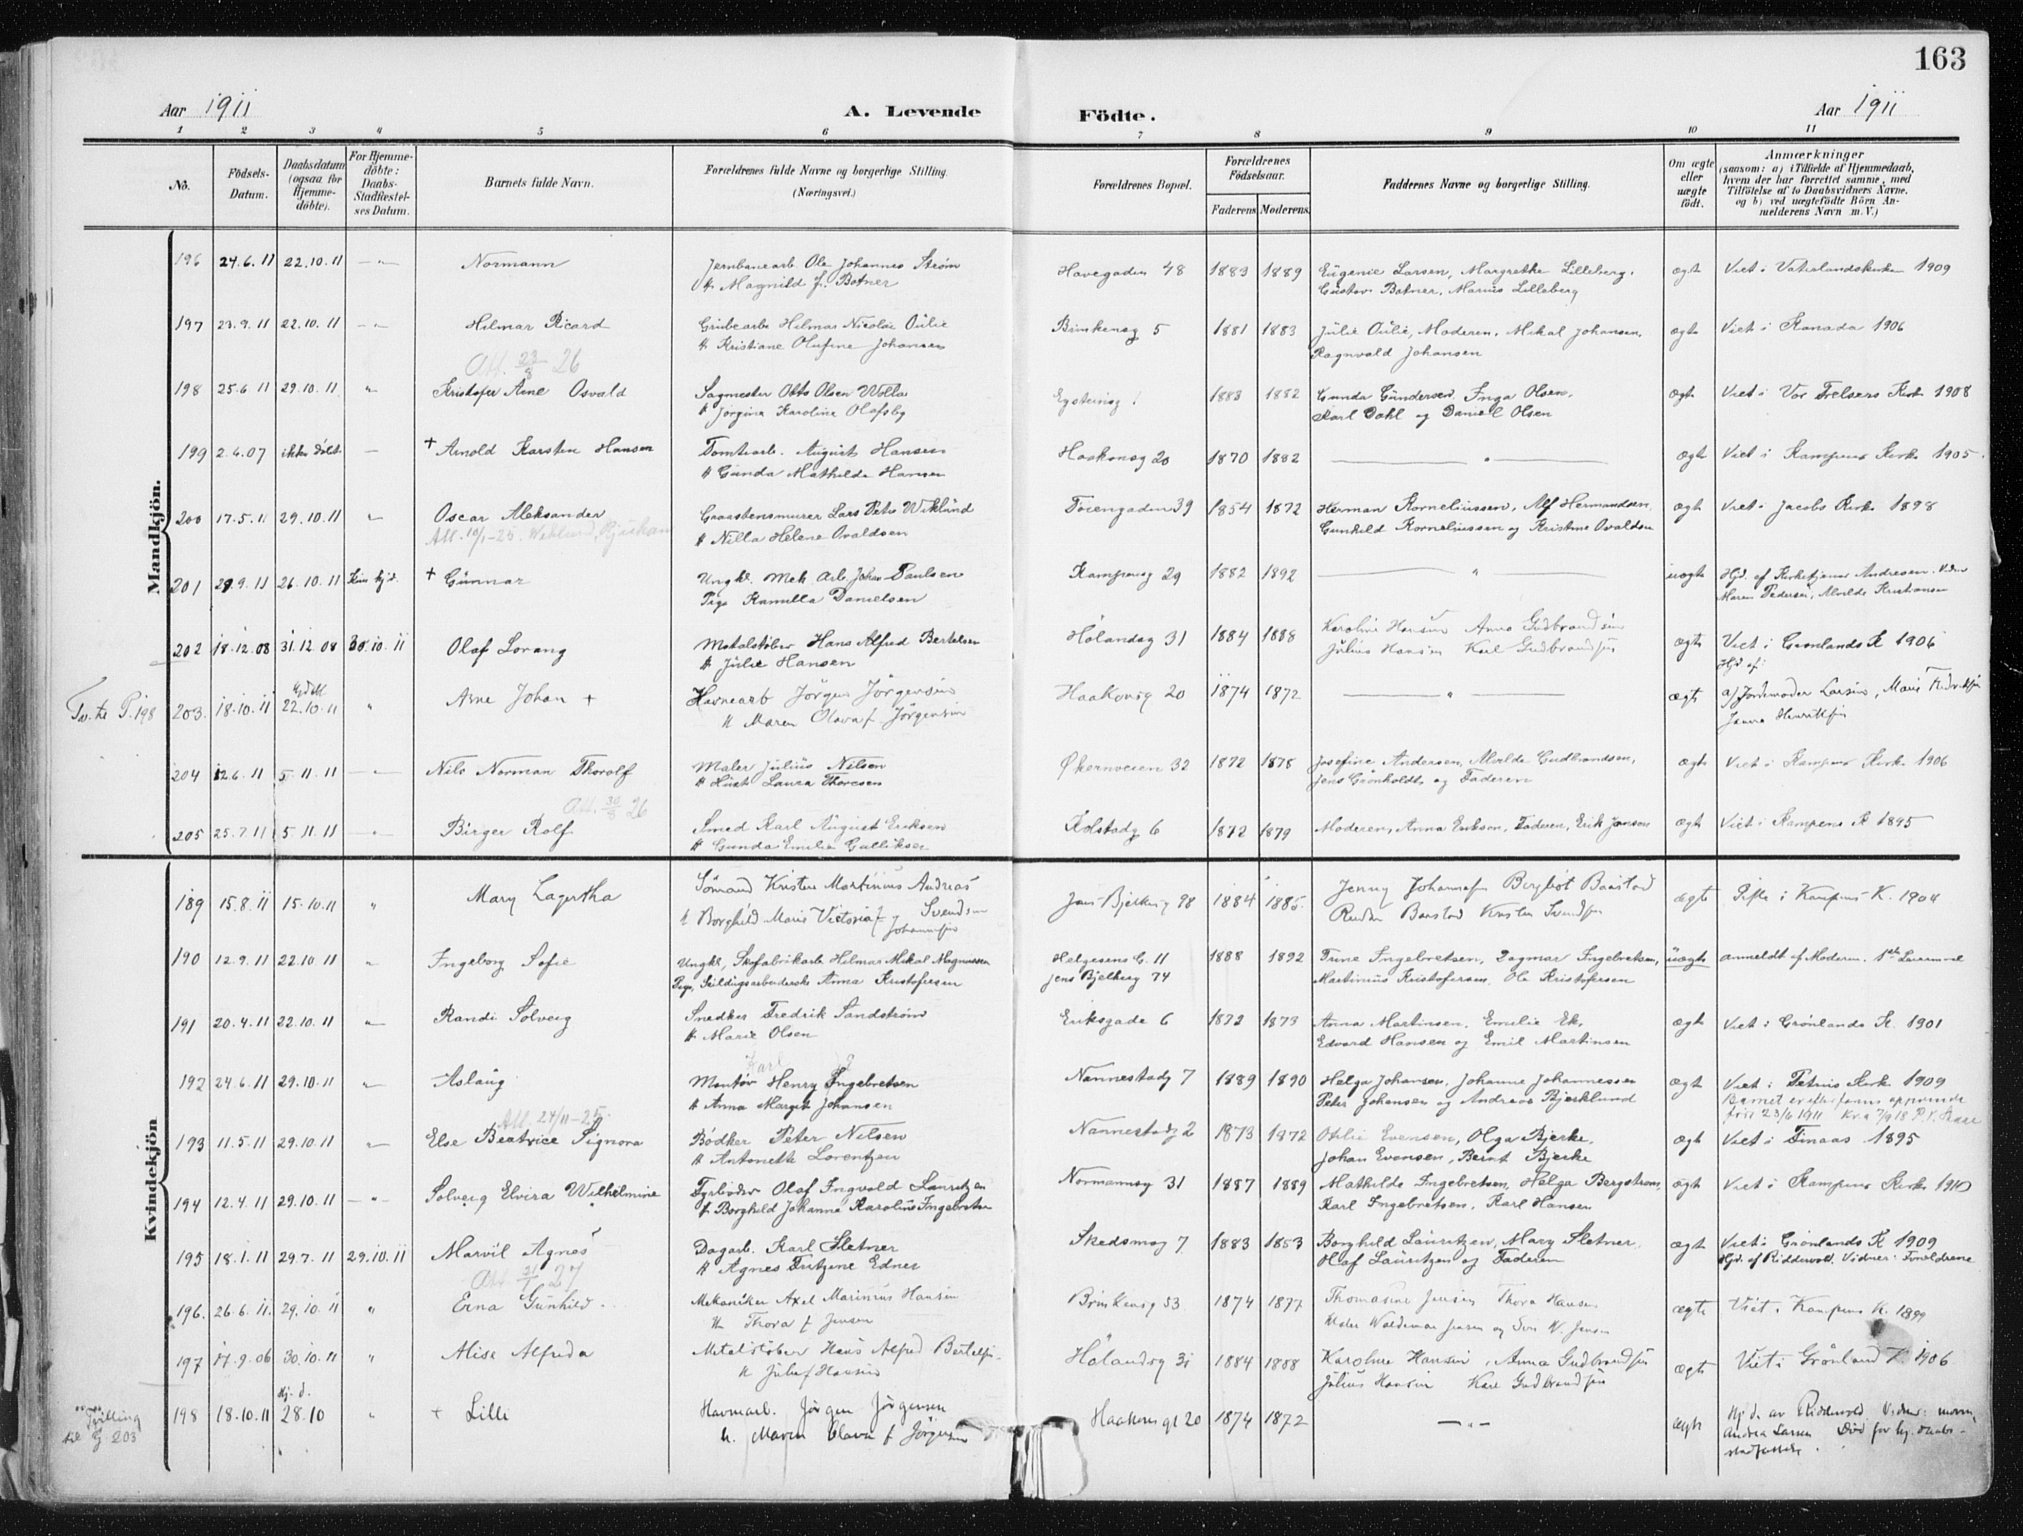 163
Aar 1911 A. Levende Födte. Aar 1911
1 2 3 4 5 6 7 8 9 10 11
No. Födsels-Datum. Daabsdatum (ogsaa för Hjemme-döbte). For Hjemme-döbte: Daabs-Stadfæstel-ses Datum. Barnets fulde Navn. Forældrenes fulde Navne og borgerlige Stilling. (Næringsvei.) Forældrenes Bopæl. Forældrenes Födselsaar. Faderens Moderens Faddernes Navne og borgerlige Stilling. Om ægte eller uægte födt. Anmærkninger (saasom: a) i Tilfælde af Hjemmedaab, hvem der har forrettet samme, med Tilföielse af to Daabsvidners Navne, og b) ved uægtefödte Börn An-melderens Navn m. V.)
Mandkjön.
196 24.6.11 22.10.11 — " — Normann Jernbanearb. Ole Johannes Strøm Havegaden 48 1883 1889 Eugenie Larsen, Margrethe Lilleberg. ægt Viet i Vaterlandskirken 1909
H. Magnild f. Botner Gustav Botner, Marius Lilleberg
197 23.9.11 22.10.11 — " — Hilmar Ricard Hilmar Nicolai Øulie Brinkensg 5 1881 1883 Julie Øulie, Moderen, Mikal Johansen, ægt Viet i Kanada 1906
H. Kristiane Olufine Johansen Ragnvald Johansen
Att. 23/8 26
198 25.6.11 29.10.11 " Kristofer Arne Osvald Sagmester Otto Olsen Wolla 1 1883 1882 Gunda Gundersen, Inga Olsen, ægt Viet i Vor Frelsers Kirk 1908
H. Jorgine Karoline Olafsby Karl Dahl og Daniel Olsen
199 2.6.07 ikke døbt — + Arnold Karsten Hansen Tomtearb. August Hansen Haakonsg 20 1870 1882 — " — ægt Viet i Kampens Kirke 1905.
H Gunda Mathilde Hansen
200 17.5.11 29.10.11 " Oscar Aleksander Graastensmurer Lars Petr Wiklund Tøiengaden 39 1854 1872 Herman Korneliussen, Alf Hermundsen, ægt Viet i Jacobs Kirke 1898
Att. 10/1-25. H Nilla Helene Ovaldsen Gunhild Korneliussen og Kristine Ovaldsen
201 29.9.11 26.10.11 Kun hjd. + Gunnar Ungk. Mek. Arb. Johan Paulsen Kampensg 29 1882 1892 — " — uægte Hjd. af Kirketjener Andresen. Vidner
Pige Kamilla Danielsen Maren Pedersen, Alvilde Kristiansen
202 18.12.08 31.12.08 30.10.11 Olaf Lorang Metalstøber Hans Alfred Bertelsen Hølandsg 31 1884 1888 Karoline Hansen Anna Gudbrandsen ægte Viet i Grønlands K 1906
H Julie Hansen Julius Hansen Karl Gudbrandsen
Hjd af:
Tv. til P. 198 203. 18.10.11 22.10.11 " Arne Johan + Havnearb Jörgen Jörgensen Haakonsg 20 1874 1872 — " — ægt a/ Jordmoder Larsen, Marie
H Maren Olava f. Jörgensen
204 12.6.11 5.11.11 — " — Nils Norman Thorolf Maler Julius Nilsen Økernveien 32 1872 1878 Josefine Andersen, Alvilde Gudbrandsen, ægte Viet i Kampens Kirke 1906
H Laura Thoresen Jens Grönholdt og Faderen
Att. 30/3 26
205 25.7.11 5.11.11 — " — Birger Rolf Smed Karl August Eriksen Kolstadg 6 1872 1879 Moderen, Anna Eriksen, Faderen, Erik Jansen ægt Viet i Kampens K 1895
H Gunda Emilie Gulliksen
Kvindekjön
189 15.8.11 15.10.11 " Mary Lagertha Sömand Kristen Martinius Andreas Svendsen Jens Bjelkesg 98 1884 1885. Jenny Johannesen Borghot Baastad ægte Kampens K. 1904
H Borghild Marie Victoria f Johannesen Baastad Kristen Svendsen
190 12.9.11 22.10.11 " Ingeborg Sofie Ungk, Skofabrikarb. Hilmar Mikal Magnussen Helgesens G. 11 1888 1892 Trine Ingebretsen, Dagmar Ingebretsen, uægte anmeldt af Moderen.
Pige, Anna Kristofersen Jens Bjelkesg 74 Martinius Kristofersen, Ole Kristofersen
191 20.4.11 22.10.11 " Randi Solveig Snedker Fredrik Sandstrøm Eriksgade 6 1872 1873 Anna Martinsen, Emilie Ek, ægt Viet i Grönlands K. 1901
H Marie Olsen Edvard Hansen og Emil Martinsen
Karl
192 24.6.11 29.10.11 " Aslaug Montør Henry Ingebretsen Nannestadg 7 1889 1890 Helga Johansen, Johanne Johannessen ægt Viet i Petrus Kirke 1909
H Anna Margit Johansen Peter Johansen og Andreas Bjerklund
Att. 24/11-25.
193 11.5.11 29.10.11 " Else Beatrice Signora Bödker Peter Nilsen Nannestadg 2 1873 1872 Othlie Evensen, Olga Bjerke, ægt Viet i Finaas 1895
H Antonette Lorentzen Johan Evensen, Bernt Bjerke
194 12.4.11 29.10.11 — " — Solveig Elvira Wilhelmine Fyrböder Olaf Ingvald Lauritzen Normannsg 31 1887 1889 Mathilde Ingebretsen, Helga Bergstrøm, ægt Viet i Kampens Kirke 1910
H. Borghild Johanna Karoline Ingebretsen Karl Ingebretsen, Karl Hansen
195 18.1.11 29.7.11 29.10.11 Marvil Agnes Dagarb. Karl Sletner Skedsmog 7 1883 1853 Borghild Lauritzen, Mary Sletner, ægt Viet i Grönlands K 1909
H Agnes Fritzene Edner Olaf Lauritzen og Faderen Hjd. af Riddervold. Vidner: Forældrene
Att. 21/1 27
196. 26.6.11. 29.10.11 " Erna Gunhild. Mekaniker Axel Marinius Hansen Brinkensg 53 1874 1877 Thomasine Jensen Thora Hansen ægte Viet i Kampens K. 1899
H Thora f Jensen Waldemar Jensen og W. Jensen
197 17.9.06 30.10.11 " Alise Alfreda Metalstøber Hans Alfred Bertelsen Hølandsg 31 1884 1888 Karoline Hansen, Anna Gudbrandsen ægte Viet i Grönland K. 1906
H Julie f Hansen Julius Hansen Karl Gudbrandsen
Tvilling til G 203 198 18.10.11 Hj. d. 28.10 " + Lilli Havnearb. Jörgen Jörgensen Haakonsgt 20 1874 1872 — " — ægte Hj d. av Riddervold Vidner:
H. Maren Olava f Jörgensen Andrea Larsen Död før hj. daabs-
stadfæstelse.